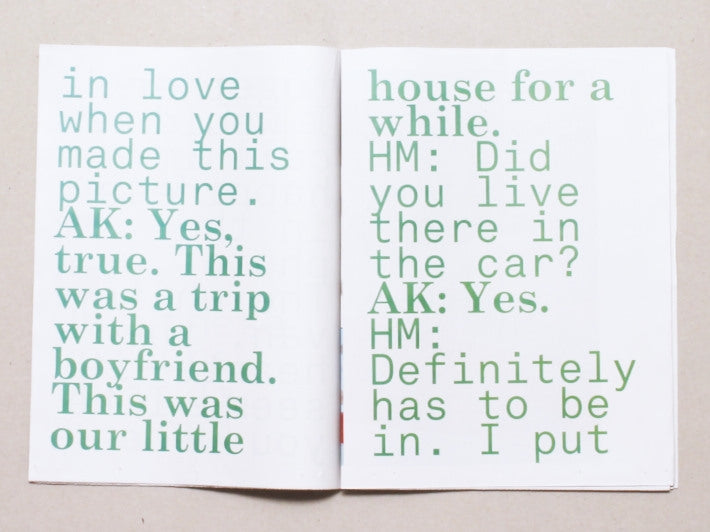 in love
when you
made this
picture.
AK: Yes,
true. This
was a trip
with a
boyfriend.
This was
our little
house for a
while.
HM: Did
you live
there in
the car?
AK: Yes.
HM:
Definitely
has to be
in. I put